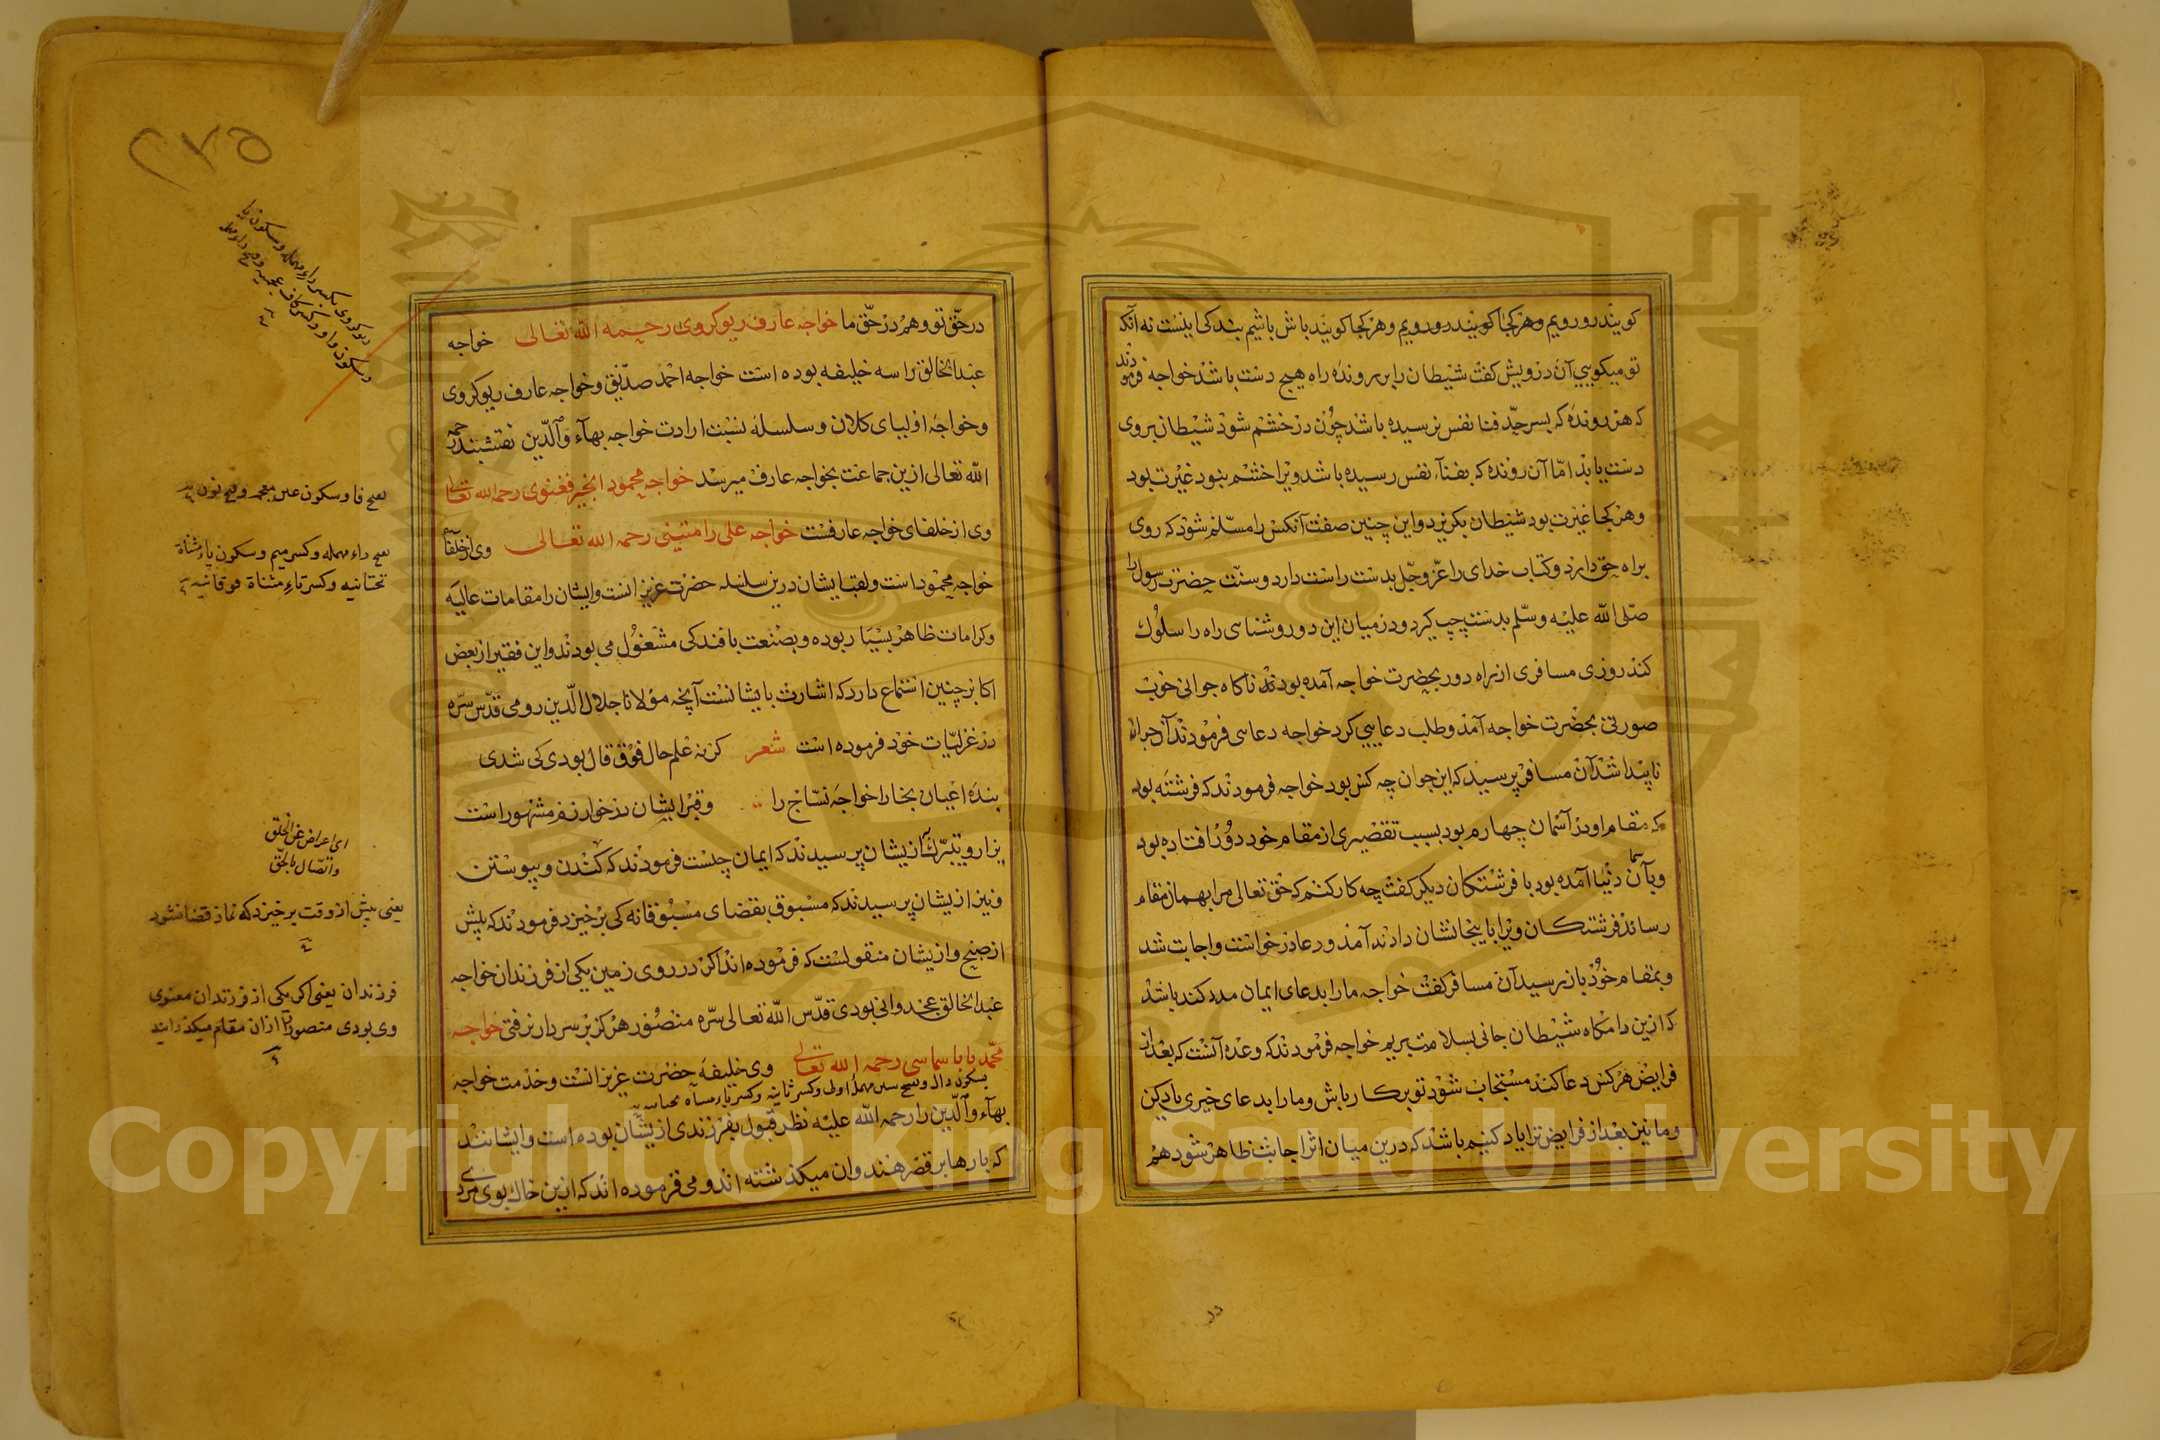 کویند رو رویم و هر کجا کویند رو رویم و هر کجا کویند باش باشیم بندکی اینست نه آنکه
تو میکویی آن درویش کفت شیطان را بر رونده راه هیچ دست باشد خواجه فرمودند
که هر رونده که بسر حدّ فنا نفس نرسیده باشد چون در خشم شود شیطان بروی
دست یابد امّا آن رونده که بفنآء نفس رسیده باشد ویرا خشم نبود غیرت بود
و هر کجا غیرت بود شیطان بکریزد و این چنین صفت آنکس را مسلّم شود که روی
براه حق دارد و کتاب خدای را عزّ و جلّ بدست راست دارد و سنّت حضرت رسول را
صلّی الله علیه وسلّم بدست چپ کیرد و در میان این دو روشنایی راه را سلوک
کند روزی مسافری از راه دور بحضرت خواجه آمده بودند ناکاه جوانی خوب
صورتی بحضرت خواجه آمد و طلب دعایی کرد خواجه دعایی فرمودند آن جوان
ناپیدا شد آن مسافر پرسید که این جوان چه کس بود خواجه فرمودند که فرشته بود
که مقام او در آسمان چهارم بود بسبب تقصیری از مقام خود دور افتاده بود
و بآسمان دنیا آمده بود با فرشتکان دیکر کفت چه کار کنم که حق تعالی مرا بهمان مقام
رساند فرشتکان ویرا باینجا نشان دادند آمد و دعا درخواست و اجابت شد
و بمقام خود باز رسید آن مسافر کفت خواجه ما را بدعای ایمان مدد کند باشد
که ازین دامکاه شیطان جانی بسلامت بریم خواجه فرمودند که وعده آنست که بعد از
فرایض هر کس دعا کند مستجاب شود تو بر کار باش و ما را بدعای خیری یاد کن
و ما نیز بعد از فرایض ترا یاد کنیم باشد که درین میان اثر اجابت ظاهر شود هم
در حقّ تو و هم در حقّ ما خواجه عارف ریوکروی رحمه الله تعالی خواجه
عبد الخالق را سه خلیفه بوده است خواجه احمد صدّیق و خواجه عارف ریوکروی
و خواجه اولیای کلان و سلسلهٔ نسبت ارادت خواجه بهآء والدّین نقشبند رحمه
الله تعالی ازین جماعت بخواجه عارف میرسد خواجه محمود انجیر فغنوی رحمه الله تعالی
وی از خلفای خواجه عارفست خواجه علی رامیتنی رحمه الله تعالی وی از خلفاء
خواجه محمود است و لقب ایشان درین سلسله حضرت عزیزانست و ایشان را مقامات عالیه
و کرامات ظاهر بسیار بوده و بصنعت بافندکی مشغول می بودند و این فقیر از بعض
اکابر چنین استماع دارد که اشارت بایشانست آنچه مولانا جلال الدّین رومی قدّس سرّه
در غزلیّات خود فرموده است شعر کر نه علم حال فوق قال بودی کی شدی
بندهٔ اعیان بخارا خواجهٔ نسّاج را و قبر ایشان در خوارزم مشهور است
یزار و یتبرّک از ایشان پرسیدند که ایمان چیست فرمودند که کندن و پیوستن
و نیز از ایشان پرسیدند که مسبوق بقضای مسبوقانه کی بر خیزد فرمودند که پیش
از صبح و از ایشان منقولست که فرموده اند اکر در روی زمین یکی از فرزندان خواجه
عبد الخالق غجدوانی بودی قدّس الله تعالی سرّه منصور هرکز بر سر دار نرفتی خواجه
محمّد بابا سماسی رحمه الله تعالی وی خلیفهٔ حضرت عزیزانست و خدمت خواجه
بهآء والدّین را رحمه الله علیه نظر قبول بفرزندی از ایشان بوده است و ایشانند
که بارها بر قصر هندوان میکذشته اند و می فرموده اند که ازین خاک بوی مردی
۲۷۵
ریوکروی بکسر راء مهمله و سکون یا
بفتح فا و سکون غین معجمه و فتح نون
بفتح راء مهمله و کسر میم و سکون یاء مثناة
تحتانیه و کسر تاء مثناة فوقانیه
ای اعراض عن الخلق
و اتّصال بالحقّ
یعنی پیش از وقت بر خیزد که نماز قضا نشود
فرزندان یعنی اکر یکی از فرزندان معنوی
وی بودی منصور را ازان مقام میکذرانید
Copyright © King Saud University